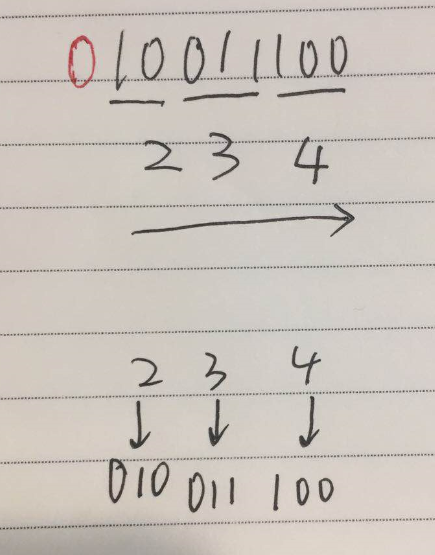 010 011 100
2 3 4
2 3 4
010 011 100